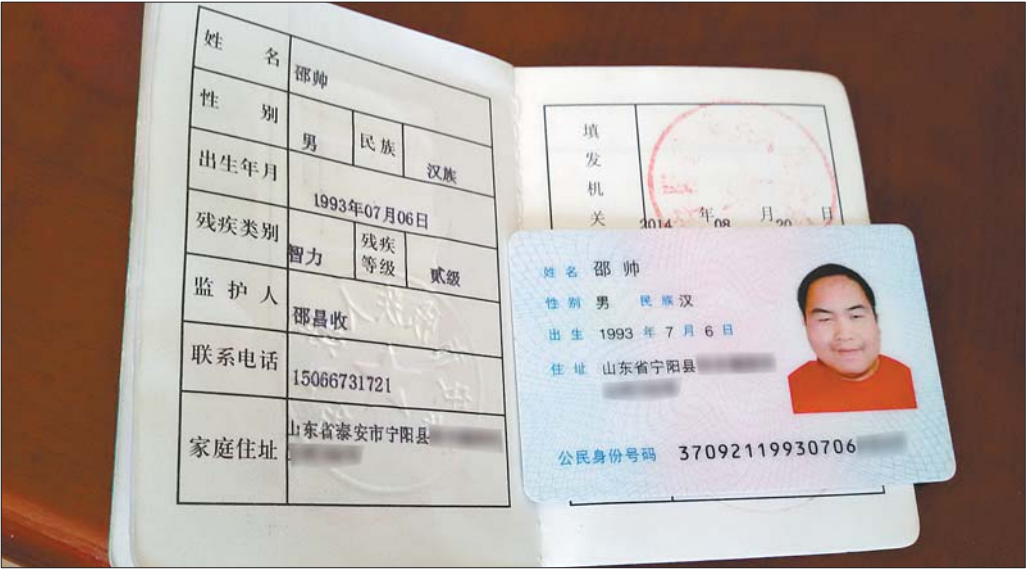 姓名 邵帅
性别 男 民族 汉族
出生年月 1993年07月06日
残疾类别 智力 残疾等级 贰级
监护人 邵昌收
联系电话 15066731721
家庭住址 山东省泰安市宁阳县
填发机关
2014年08月20日
姓名 邵帅
性别 男 民族 汉
出生 1993年7月6日
住址 山东省宁阳县
公民身份号码 37092119930706